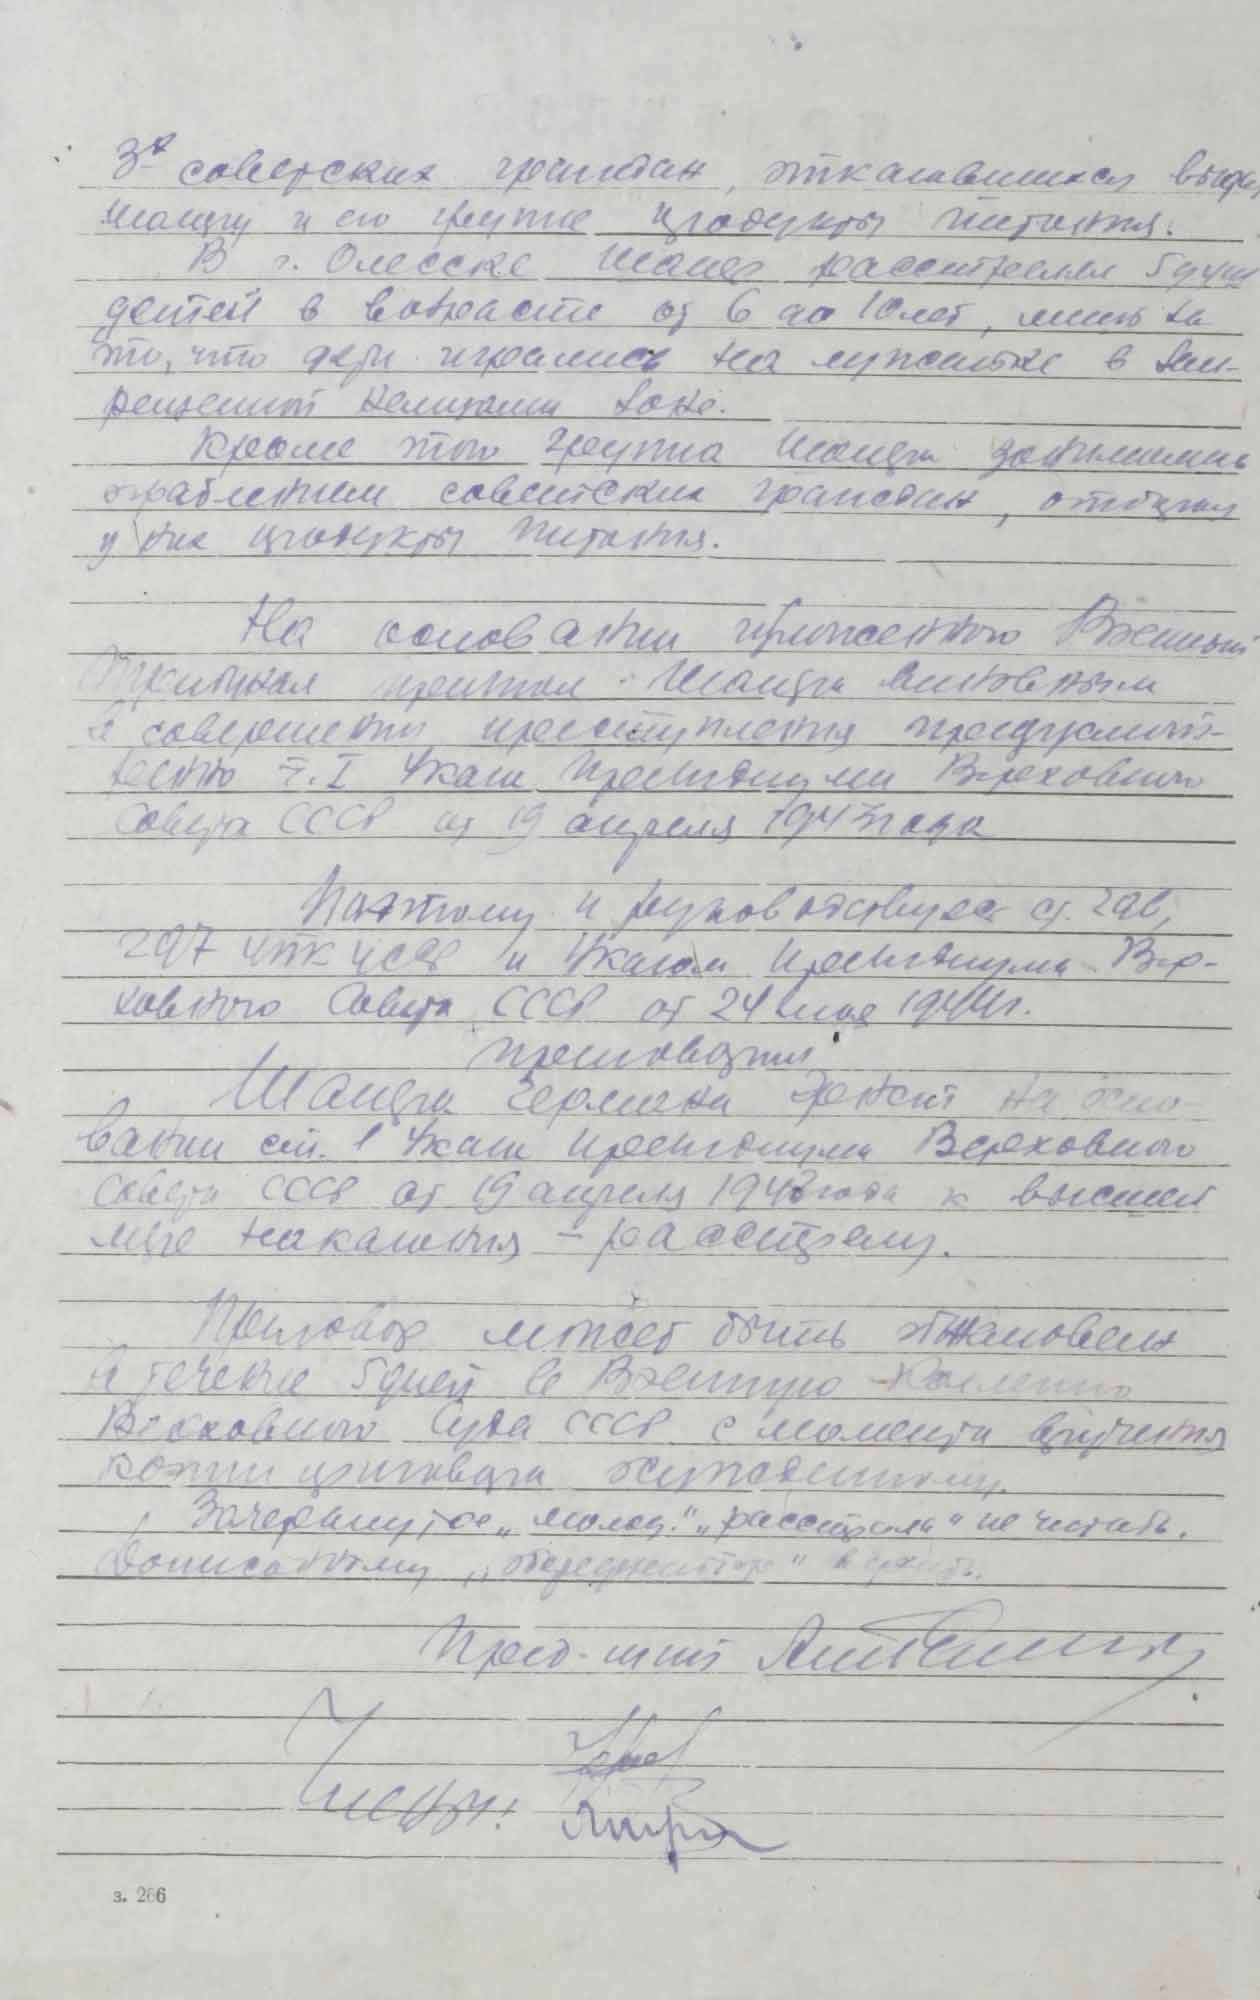 3х советских граждан, отказавшихся выдать
Шанцу и его группе продукты питания.
В г. Олесске Шанц расстрелял 5 душ
детей в возрасте от 6 до 10 лет, лишь за
то, что дети игрались на лужайке в зап-
рещенной немцами зоне.
Кроме того группа Шанца занималась
ограблением советских граждан, отбирая
у них продукты питания.
На основании изложенного Военный
Трибунал признал Шанца виновным
в совершении преступления предусмот-
рено ч. I Указа Президиума Верховного
Совета СССР от 19 апреля 1943 года
Поэтому и руководствуясь ст. 296,
297 УПК УССР и Указом Президиума Вер-
ховного Совета СССР от 24 мая 1944 г.
приговорил
Шанца Германа Эрнст на осно-
вании ст. 1 Указа Президиума Верховного
Совета СССР от 19 апреля 1943 года к высшей
мере наказания – расстрелу.
Приговор может быть обжалован
в течение 5 дней в Военную Коллегию
Верховного Суда СССР с момента вручения
копии приговора осужденному.
Зачеркнутое „ „расстрела" не читать.
Дописанному верить.
Пред-щий
Члены:
з. 266